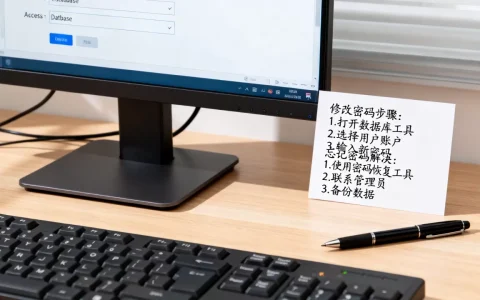 Access :
Datbase
修改密码步骤：
1.打开数据库工具
2.选择用户账户
3.输入新密码
忘记密码解决：
1.使用密码恢复工具
2.联系管理员
3.备份数据